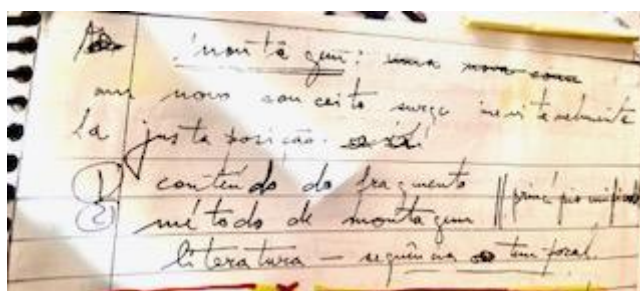 montagem: uma nova
um novo conceito surge inevitavelmente
da justa posição.
conteúdo do fragmento
2) método de montagem || princípio
literatura — sequência temporal.